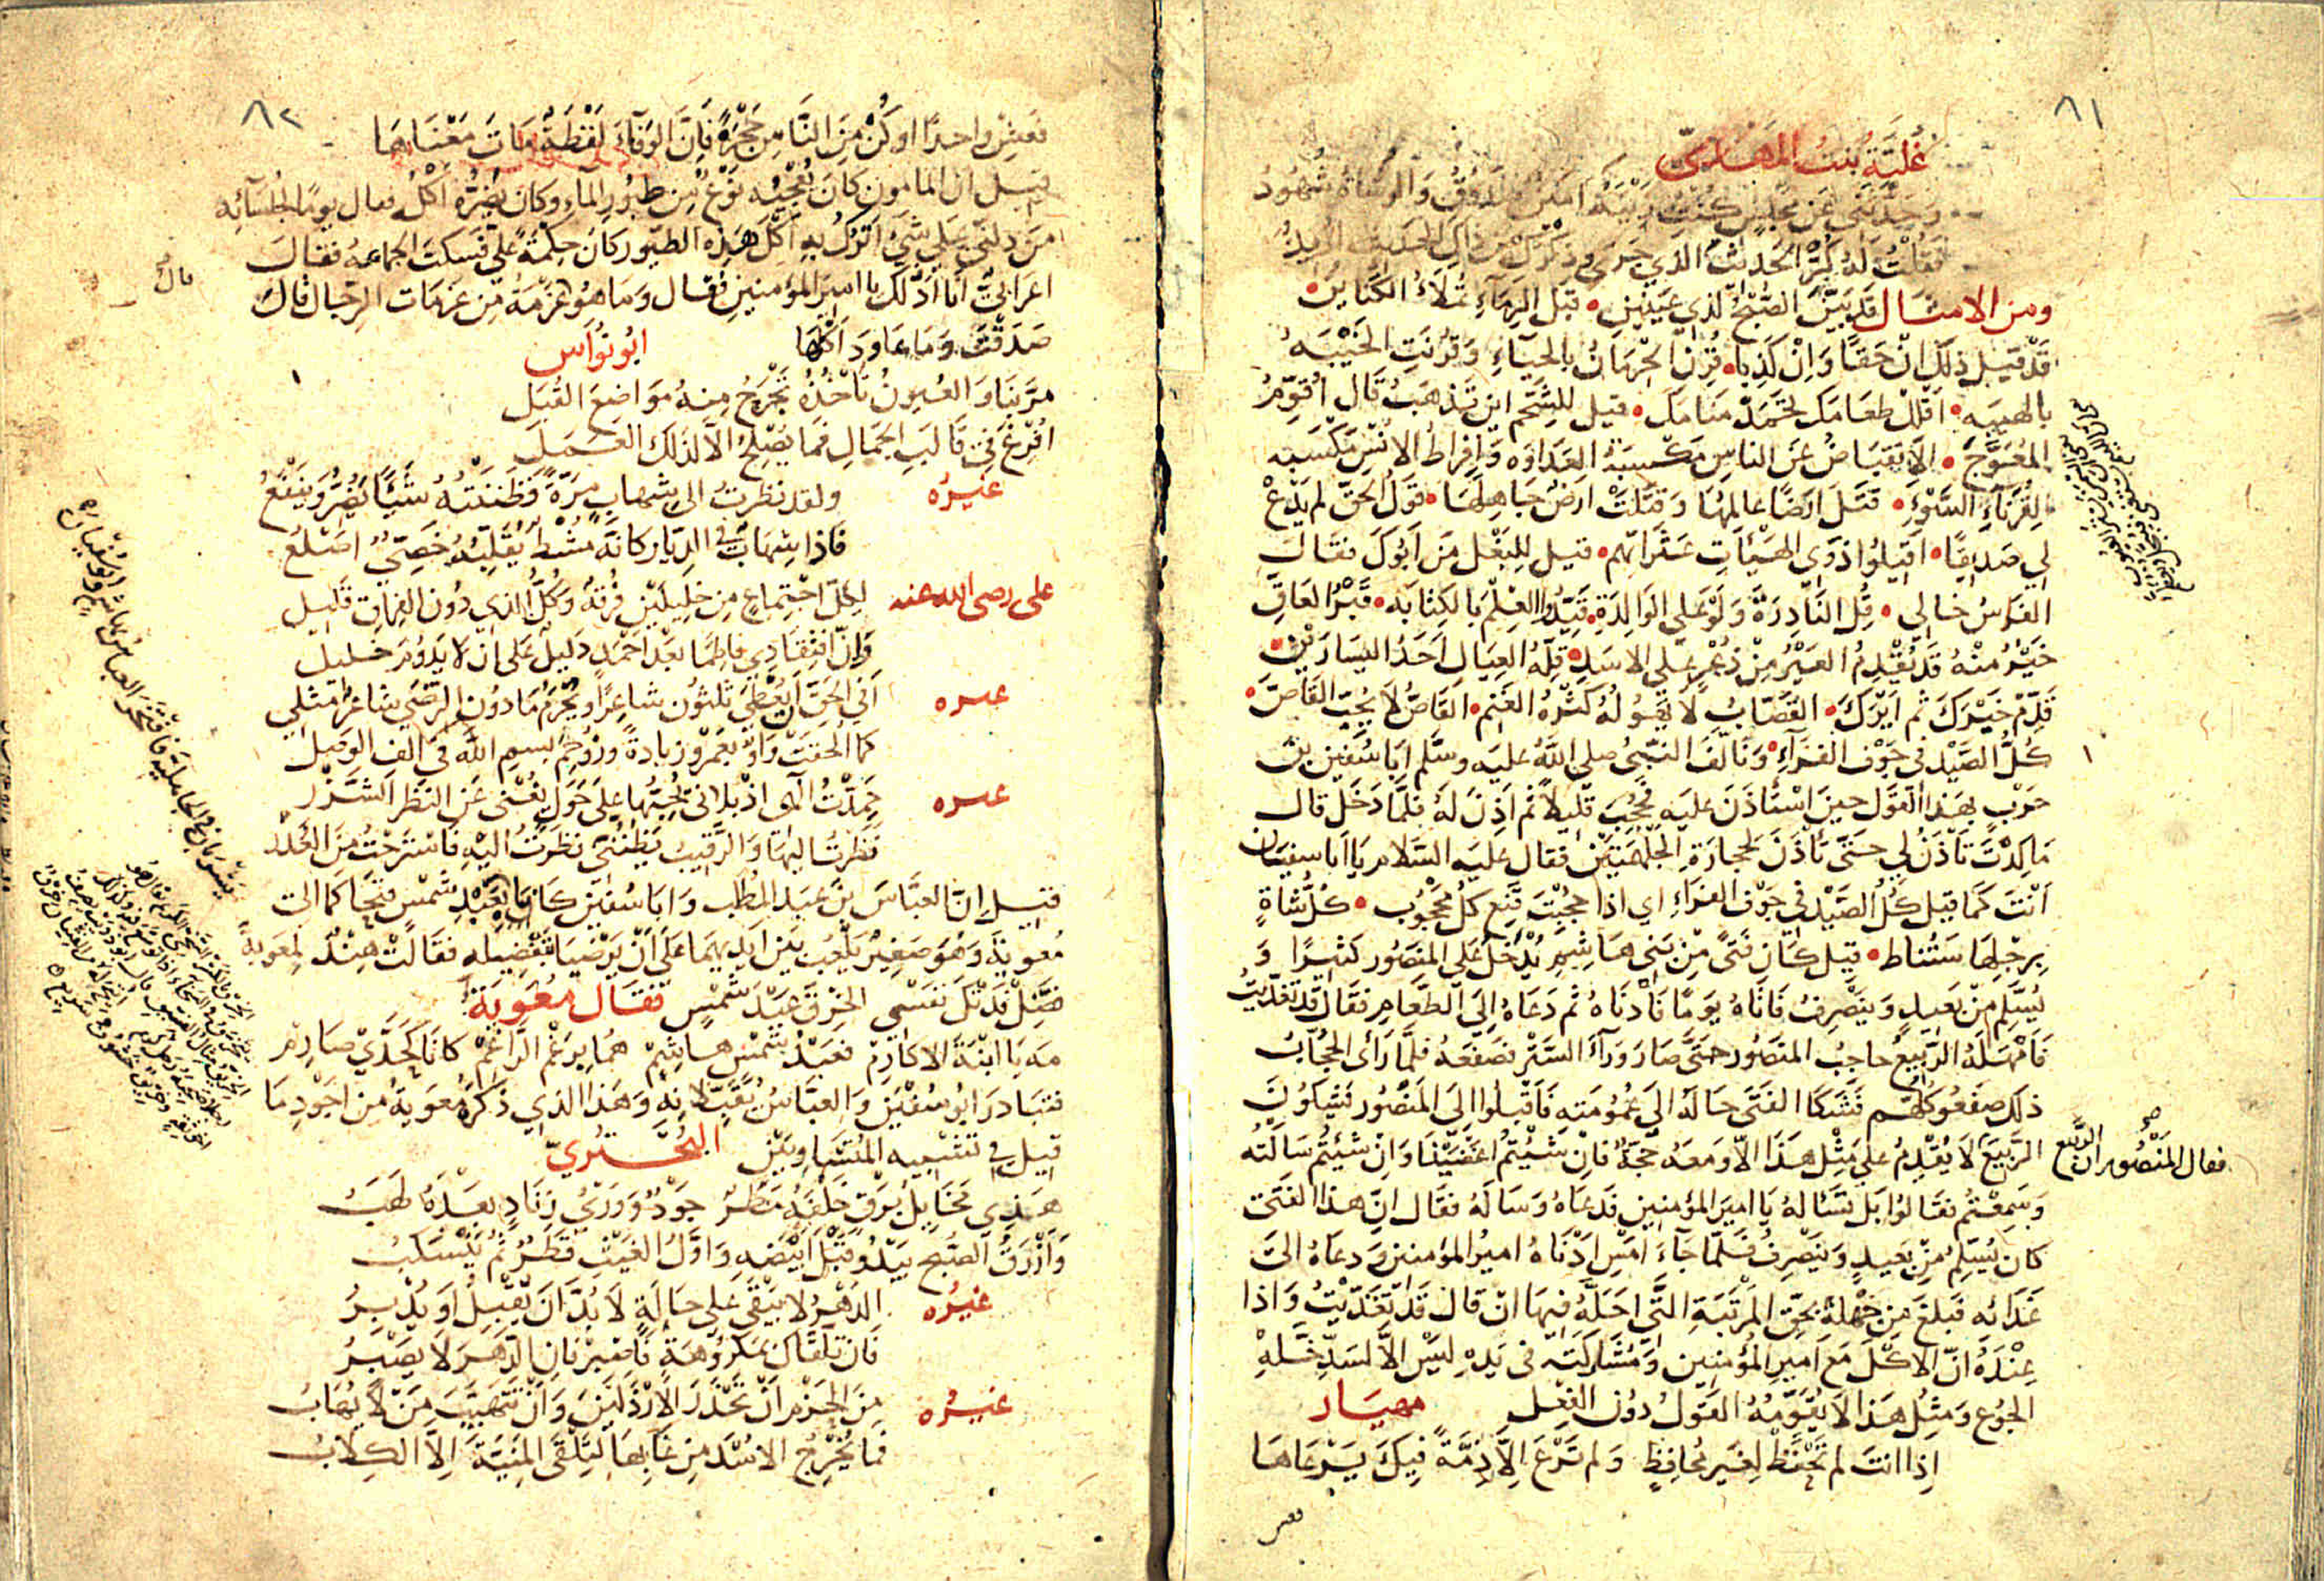 ٨١
عُليّة بنت المهدي
وحدثتني عن مجلس كنت زينه والوشاة شهود
فقلت له كر الحديث الذي جرى وذكرك من ذاك الحديث اريد
ومن الامثال قد بين الصبح لذي عينين • قبل الرماء تملأ الكنائن •
قد قيل ذلك ان حقا وان كذبا • قرن الحرمان بالحياء وقرنت الخيبه
بالهيبه • اقلل طعامك تحمد منامك • قيل للشحم اين تذهب قال اقوم
المعوج • الانقباض عن الناس مكسبة العداوه وافراط الانس مكسبه
لقرناء السوء • قتل ارضا عالمها وقتلت ارض جاهلها • قول الحق لم يدع
لي صديقا • اقيلوا ذوي الهيئات عثراتهم • قيل للبغل من ابوك فقال
الفرس خالي • قل النادرة ولو على الوالدة • قيدوا العلم بالكتابه • قبر العاق
خير منه قد يقدم العير من ذعر على الاسد • قلة العيال احد اليسارين •
قدم خيرك ثم ايرك • القصاب لا تهوله كثرة الغنم • القاص لا يحب القاص •
كل الصيد في جوف الفراء • وتالف النبي صلى الله عليه وسلم ابا سفين بن
حرب بهذا القول حين استأذن عليه فحجب قليلا ثم اذن له فلما دخل قال
ما كدت تأذن لي حتى تأذن لحجارة الجلهمتين فقال عليه السلام يا ابا سفيان
انت كما قيل كل الصيد في جوف الفراء اي اذا حجبت قنع كل محجوب • كل شاة
برجلها ستناط • قيل كان فتى من بني هاشم يدخل على المنصور كثيرا و
يسلم من بعيد وينصرف فاتاه يوما فأدناه ثم دعاه الى الطعام فقال قد تغديت
فامهله الربيع حاجب المنصور حتى صار ورآء الستر فصفعه فلما رأى الحجاب
ذلك صفعوه كلهم فشكا الفتى حاله الى عمومته فاقبلوا الى المنصور فشكون
فقال المنصور ان الربيع
الربيع لا يقدم على مثل هذا الا ومعه حجة فان شئتم اغضينا وان شئتم سالته
وسمعتم فقالوا بل تسأله يا امير المؤمنين فدعاه وساله فقال ان هذا الفتى
كان يسلم من بعيد وينصرف فلما جآء امس ادناه امير المؤمنين ودعاه الى
غدائه فبلغ من جهله بحق المرتبة التي احله فيها ان قال قد تغديت واذا
عنده ان الاكل مع امير المؤمنين ومشاركته في يده ليس الا لسد خله
الجوع ومثل هذا لا يقومه القول دون الفعل مهيار
اذا انت لم تحفظ لغير محافظ ولم ترع الا ذمة فيك يرعاها
فعش
٨٢
فعش واحدا او كن من الناس حجرة فان الوفآء لفظة مات معناها
قيل ان المامون كان يعجبه نوع من طيور المآء وكان يضره اكله فقال يوما لجلسآئه
من دلني على شئ اترك به اكل هذه الطيور كان حكمه علي فسكت الجماعه فقال
اعرابي انا ادلك يا امير المؤمنين فقال وما هو قال عزمة من عزمات الرجال قال
صدقت وما عاود اكلها ابو نواس
مر بنا والعيون تأخذه تجرح منه مواضع القبل
افرغ في قالب الجمال فما يصلح الا لذلك العمل
غيره ولقد نظرت الى شهاب مرة فظننته شيئا يضر وينفع
فاذا شهاب في الديار كانه مشط يقلبه خصي اصلع
علي رضى الله عنه لكل اجتماع من خليلين فرقة وكل الذي دون الفراق قليل
وان افتقادي فاطما بعد احمد دليل على ان لا يدوم خليل
غيره أفي الحق ان يعطى ثلثون شاعرا ويحرم ما دون الرضى شاعر مثلي
كما الحقت واو بعمرو زيادة وزوحم بسم الله في الف الوصل
غيره حمدت الهى اذ بلاني بحبها على حول يغني عن النظر الشزر
نظرت اليها والرقيب يظنني نظرت اليه فاسترحت من العذر
قيل ان العباس بن عبد المطلب وابا سفين كانا بعبد شمس فتحاكما الى
معوية وهو صغير يلعب بين ايديهما على ان يرضيا بتفضيله فقالت هند لمعوية
فضل فدتك نفسي الخرق عبد شمس فقال معوية
مه يا ابنة الاكارم فعبد شمس هاشم هما برغم الراغم كانا كحدي صارم
فتبادر ابو سفين والعباس يقبلانه وهذا الذي ذكره معوية من اجود ما
قيل في تشبيه المتساويين البحتري
هذي مخايل برق خلفه مطر جود ووري زناد بعده لهب
وازرق الصبح يبدو قبل ابيضه واول الغيث قطر ثم ينسكب
غيره الدهر لا يبقى على حالة لا بد ان يقبل او يدبر
فان تلقاك بمكروهة فاصبر فان الدهر لا يصبر
غيره من الحزم ان تحذر الارذلين وان تتهيب من لا يهاب
فما يخرج الاسد من غابها لتلقى المنية الا الكلاب